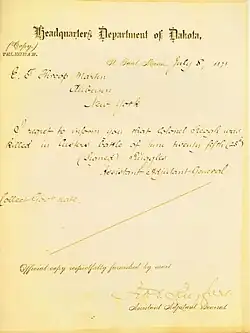 Headquarters Department of Dakota,
(Copy)
TELEGRAM.
St Paul Minn. July 6", 187
E. T. Throop Martin
Auburn
New York
I regret to inform you that Colonel Keogh was
killed in Custers battle of June twenty fifth (25)
(Signed) Ruggles
Assistant Adjutant General
Collect Govt rate
Official copy respectfully furnished by mail
Assistant Adjutant General